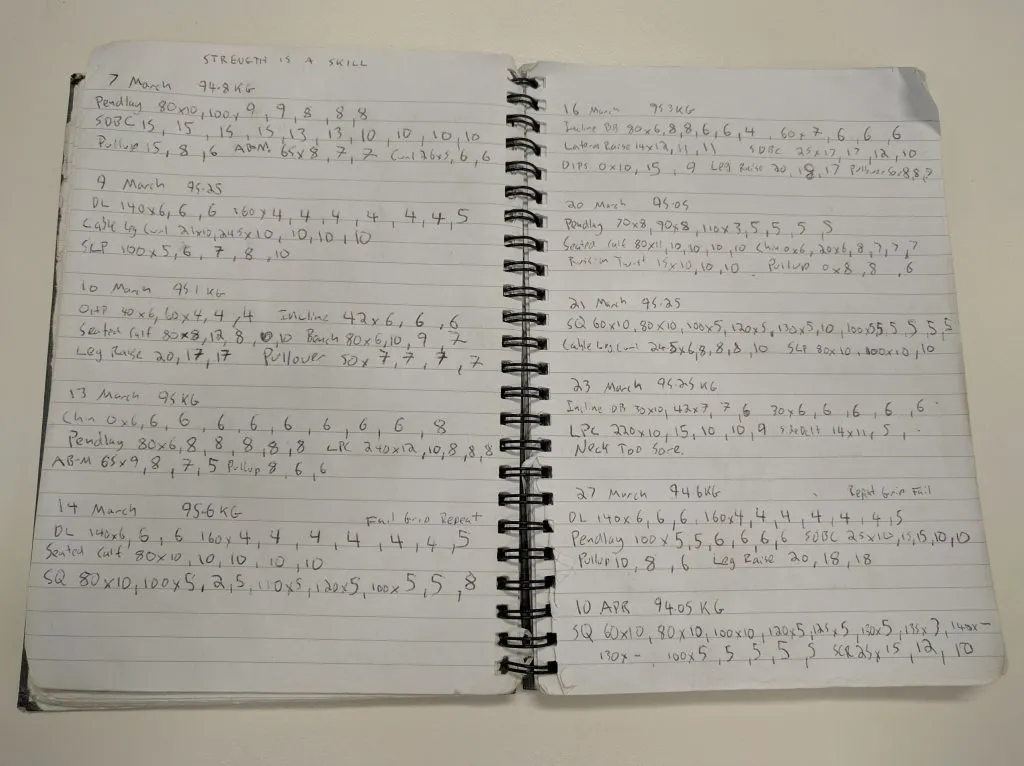 STRENGTH IS A SKILL
7 March 94.8 KG
Pendlay 80x10, 100x, 9, 9, 8, 8, 8
SDBC 15, 15, 15, 15, 13, 13, 10, 10, 10, 10
Pullup 15, 8, 6 AB-M 65x8, 7, 7 Curl 26x5, 6, 6
9 March 95.25
DL 140x6, 6, 6 160x4, 4, 4, 4, 4, 4, 5
Cable Leg Curl 21x10, 24.5x10, 10, 10, 10
SLP 100x5, 6, 7, 8, 10
10 March 95.1 KG
OHP 40x6, 60x4, 4, 4 Incline 42x6, 6, 6
Seated Calf 80x8, 12, 8, 10, 10 Bench 80x6, 10, 9, 7
Leg Raise 20, 17, 17 Pullover 50x7, 7, 7, 7
13 March 95 KG
Chin 0x6, 6, 6, 6, 6, 6, 6, 6, 6, 8
Pendlay 80x6, 8, 8, 8, 8, 8 LPC 240x12, 10, 8, 8, 8
AB-M 65x9, 8, 7, 5 Pullup 8, 6, 6
14 March 95.6 KG Fail Grip Repeat
DL 140x6, 6, 6 160x4, 4, 4, 4, 4, 4, 5
Seated Calf 80x10, 10, 10, 10, 10
SQ 80x10, 100x5, 2, 5, 110x5, 120x5, 100x5, 5, 8
16 March 95.3 KG
Incline DB 80x6, 8, 8, 6, 6, 4, 60x7, 6, 6, 6
Lateral Raise 14x12, 11, 11 SDBC 25x17, 17, 12, 10
DIPS 0x10, 15, 9 Leg Raise 20, 18, 17 Pullover 50x8, 8, 7
20 March 95.05
Pendlay 70x8, 90x8, 110x3, 5, 5, 5, 5
Seated Calf 80x11, 10, 10, 10, 10 Chin 0x6, 20x6, 8, 7, 7, 7
Russian Twist 15x10, 10, 10 Pullup 0x8, 8, 6
21 March 95.25
SQ 60x10, 80x10, 100x5, 120x5, 130x5, 10, 100x5 5, 5, 5, 5, 5
Cable Leg Curl 24.5x6, 8, 8, 8, 10 SLP 80x10, 100x10, 10
23 March 95.25 KG
Incline DB 30x10, 42x7, 7, 6 30x6, 6, 6, 6, 6
LPC 220x10, 15, 10, 10, 9 Sidedelt 14x11, 5,
Neck Too Sore.
27 March 94.6 KG Repeat Grip Fail
DL 140x6, 6, 6, 160x4, 4, 4, 4, 4, 4, 5
Pendlay 100x5, 5, 6, 6, 6, 6 SDBC 25x10, 15, 15, 10, 10
Pullup 10, 8, 6 Leg Raise 20, 18, 18
10 APR 94.05 KG
SQ 60x10, 80x10, 100x10, 120x5, 125x5, 130x5, 135x3, 140x-
130x- 100x5, 5, 5, 5, 5 SCR 25x15, 12, 10